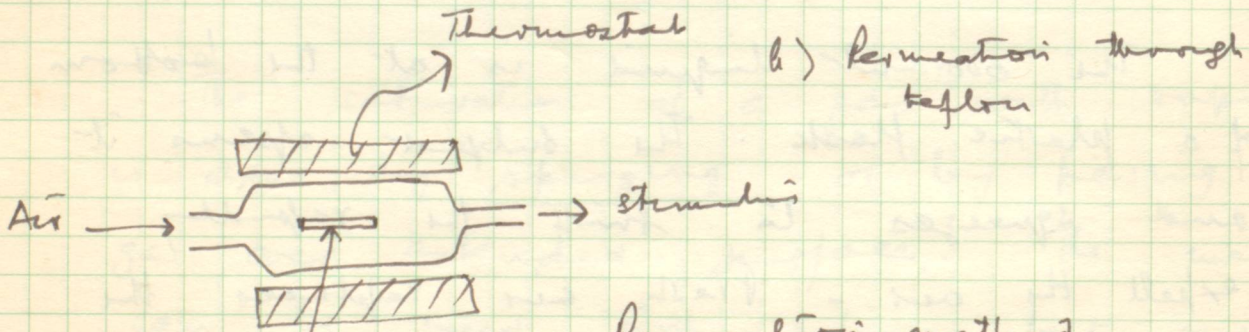 Thermostat
b) Permeation through
teflon
Air
stimulus